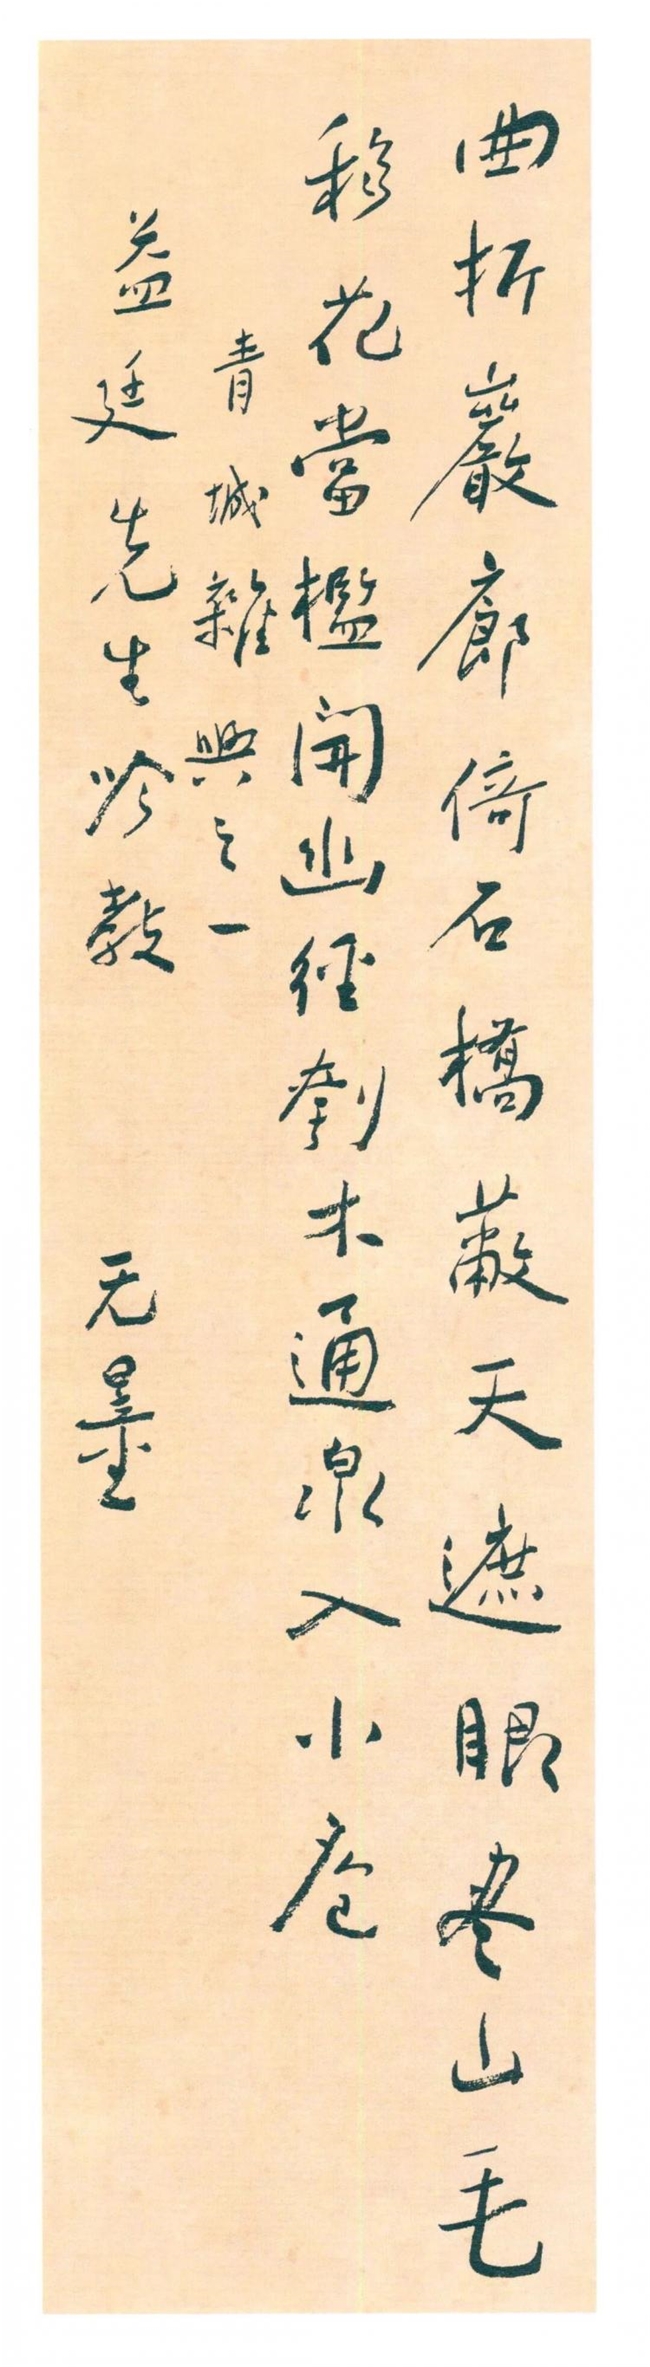 曲折巖廊倚石橋蔽天遮眼盡山毛
移花當檻開幽徑刳木通泉入小庖
青城雜興之一
益廷先生吟教
无量